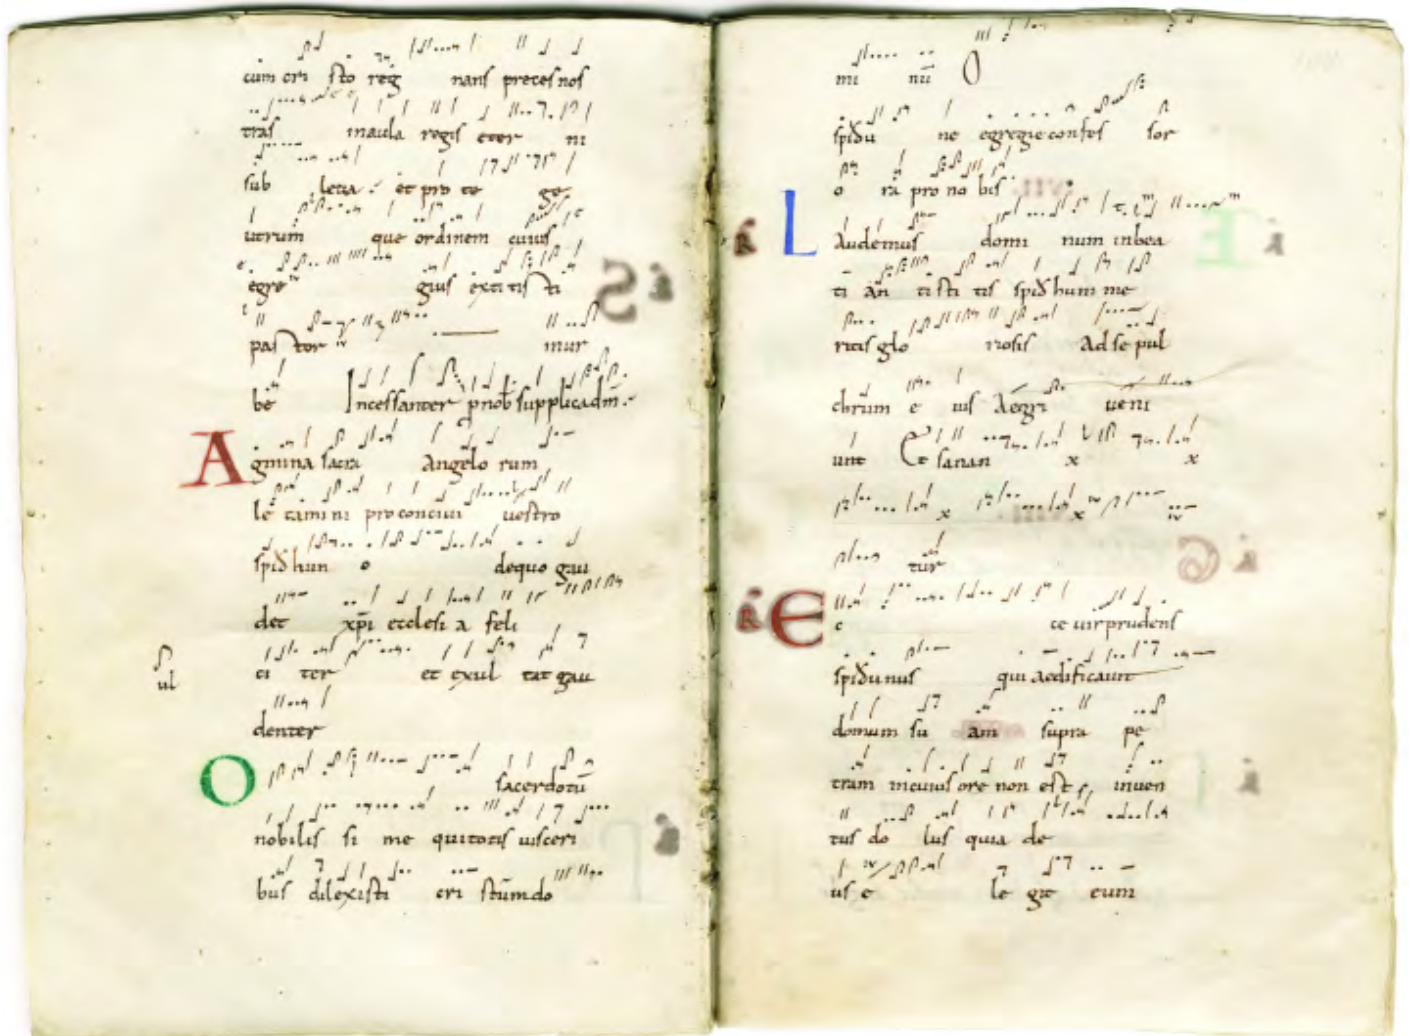 cum cri sto reg nans preces nos
tras in aula regis eter ni
sub leua et pro te ge
utrum que ordinem cuius
egre gius extitis ti
pas tor mur
be Incessanter p nob supplica dm
A gmina sacra Angelo rum
le tamini pro conciui uestro
spiđ hun o de quo gau
det xpi ecclesi a feli
ti ter et exul tat gau
ul
denter
O sacerdotū
nobilis si me qui totis uisceri
bus dilexisti cri stum do
mi nū O
spiđu ne egregie confes sor
o ra pro no bis
L Audemus domi num in bea
ti an tisti tis spiđ hum me
ritis glo riosis Ad se pul
chrum e ius Aegri ueni
unt Et sanan x x
x x
tur
R E c ce uir prudens
spiđu nus qui aedificauit
domum su am supra pe
tram in cuius ore non est inuen
tus do lus quia de
us e le git eum